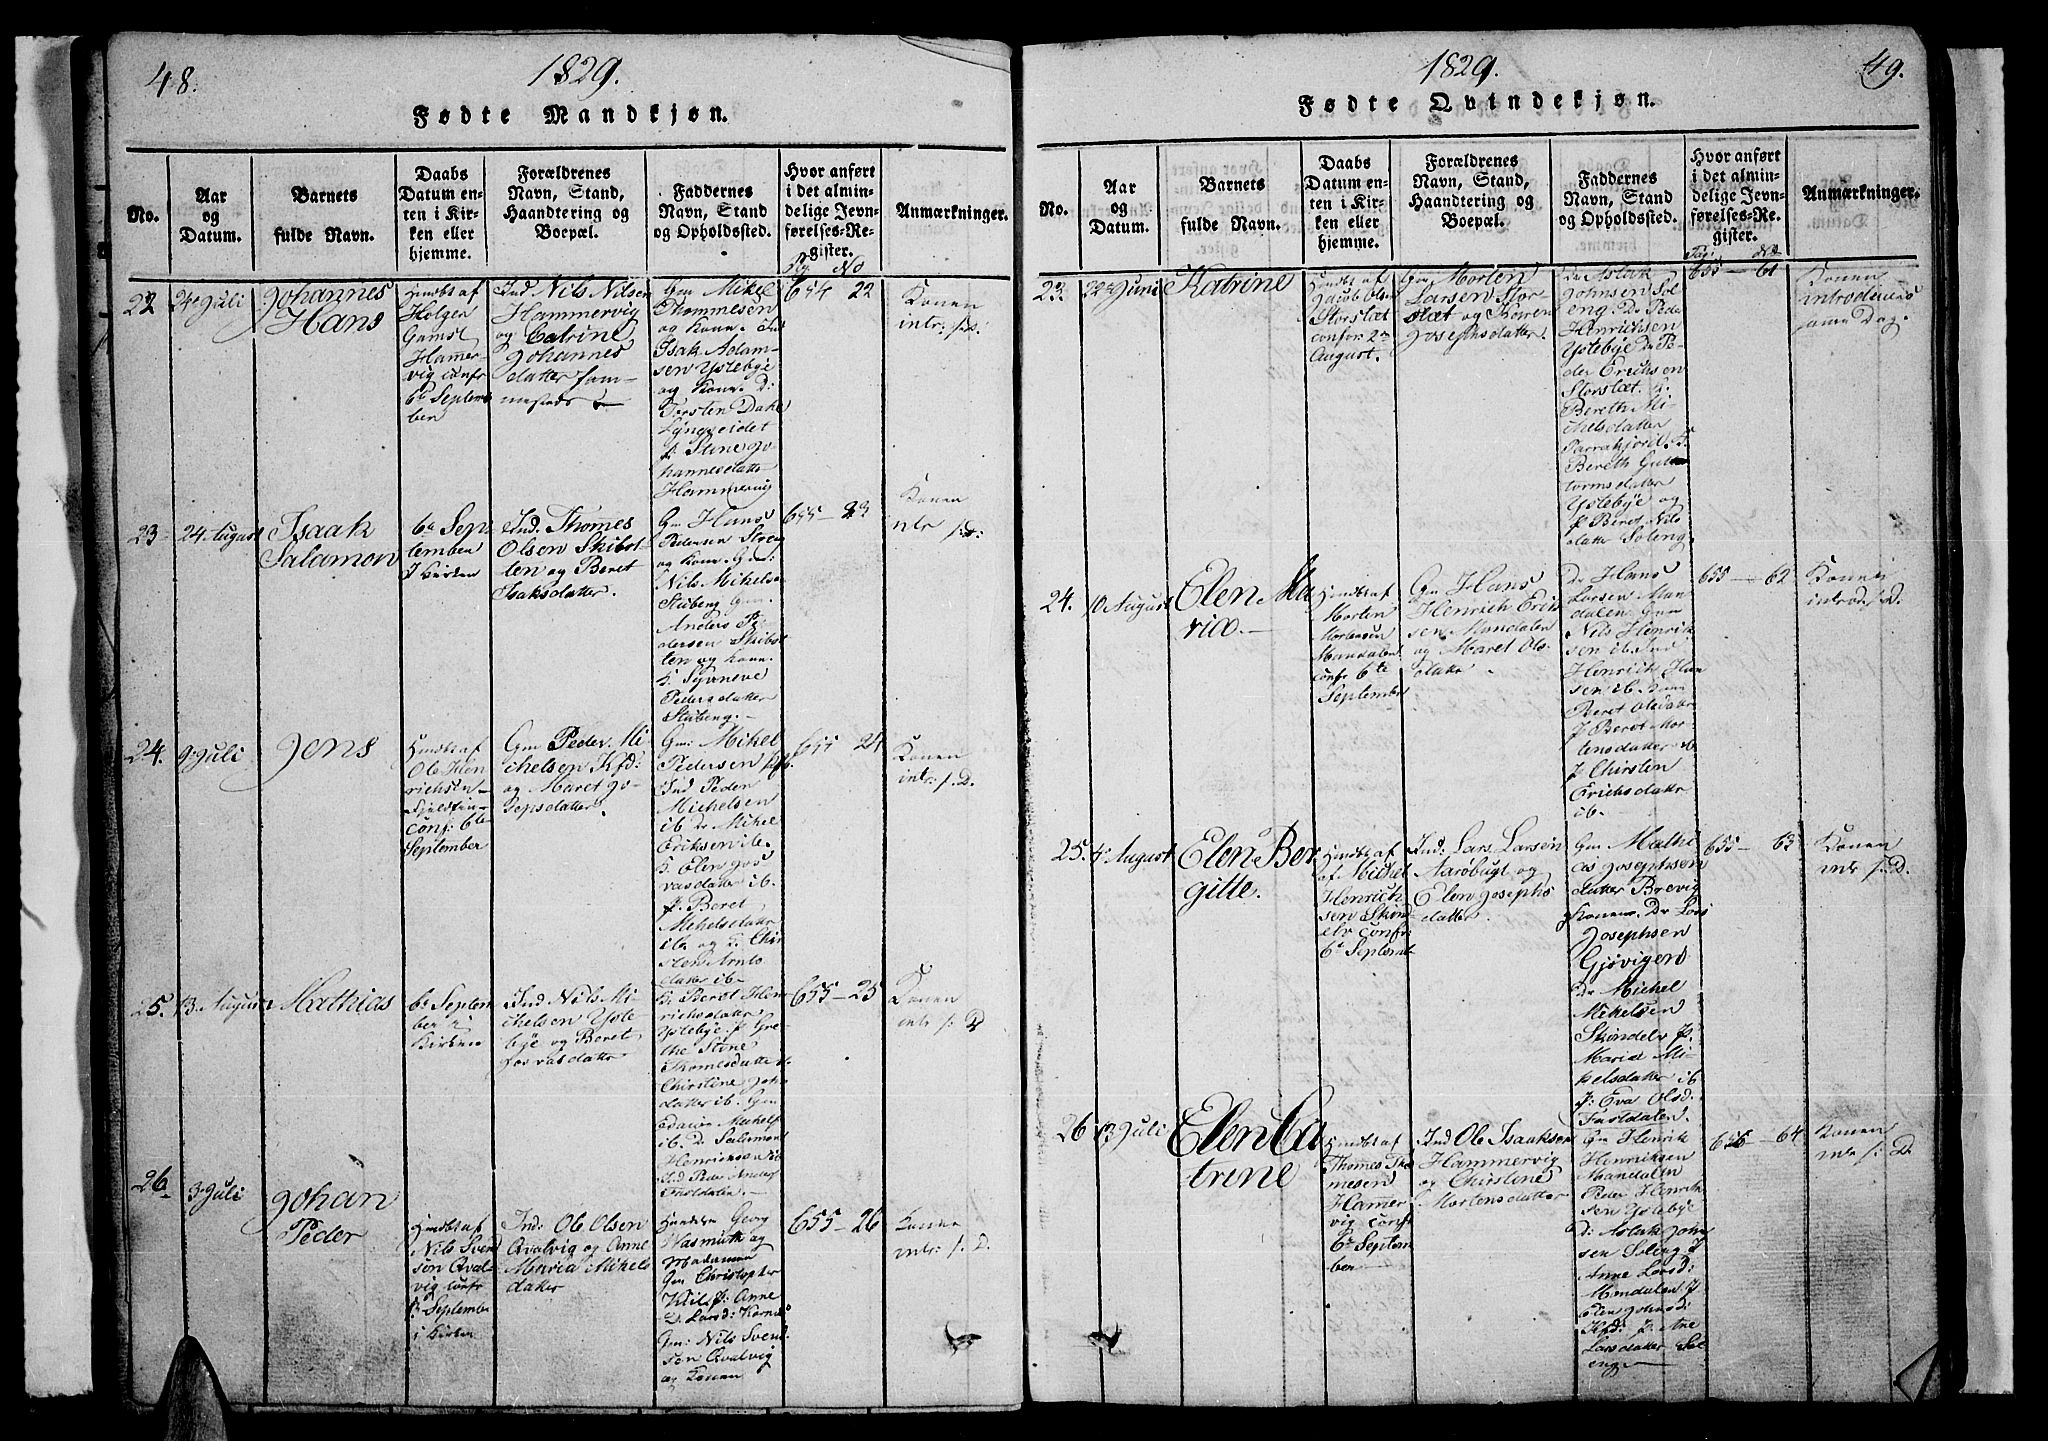 48.
1829.
Fødte Mandkjøn.
No.
Aar
og
Datum.
Barnets
fulde Navn.
Daabs
Datum en-
ten i Kir-
ken eller
hjemme.
Forældrenes
Navn, Stand,
Haandtering og
Boepæl.
Faddernes
Navn, Stand
og Opholdssted.
Hvor anført
i det almin-
delige Jevn-
førelses-Re-
gister.
Anmærkninger.
22
24 Juli
Johannes
Hans
Hmdbt af
Holger
Gamst
Hamer-
vig confr
6te Septem
ber
Ind Nils Nilsen
Hammervig
og Catrine
Johannes
datter sam-
mesteds
Gm Mikel
Thommesen
og Kone. Ind
Isak Adam-
sen Ystebye
og Kone. D:
Torsten Dahl
Lyngseidet
P. Stine Jo-
hannesdatter
Hammervig
654 22
Konen
intr: s: D:
23
24 August
Isaak
Salamon
6te Sep-
tember
I Kirken
Ind. Thomes
Olsen Skibot-
ten og Beret
Isaksdatter.
Gm Hans
Pedersen
og Kone. Gm:
Nils Mikelse
Stubeng Gm.
Anders Pe-
dersen Skibot
ten og Kone.
K. Synneve
Pedersdatter
Stubeng.
655 - 23
Konen
intr s: D:
24.
9 Juli
Jens
Hmdbt af
Ole Hen
richsen
conf: 6te
September
Gm Peder Mi-
chelsen Kfd:
og Maret Jo-
sepsdatter.
Gm: Mikel
Pedersen Kfd.
Ind Peder
Michelsen
ib Dr Mikel
Eriksen ib.
K. Elen Jos
vasdatter ib.
P. Beret
Mikelsdatter
ib. og P. Chir
sten Arnts
datter ib
655 24
Konen
intr: s: D.
25.
13 August
Mathias
6te Septem
ber i
Kirken
Ind Nils Mi-
chelsen Yste-
bye og Beret
Josvasdatter
K. Beret Hen-
richsdatter
Ystebye. P. Gre-
the Stine
Thomesdatter ib.
Christine Johs
datter ib. Gm
ib. Dr Salamon
Henrichsen ib
Ind Peder Anders
655 - 25
Konen
intr s: D
26
3 Juli
Johan
Peder
Hmdbt af
Nils Svend
sen Qvalvig
confr
6te September
i Kirken
Ind: Ole Olsen
Qvalvig og Anne
Maria Mikels
datter
Handelsm Georg
Wasmuth og
Madamen
Gm Christopher
Kiil P: Anne
Larsd: Karnes
Gm: Nils Svend
sen Qvalvig
og Konen
655 - 26
Konen
intr: s: D.
1829.
49.
Fødte Qvindekjøn.
No.
Aar
og
Datum.
Barnets
fulde Navn.
Daabs
Datum en-
ten i Kir-
ken eller
hjemme.
Forældrenes
Navn, Stand,
Haandtering og
Boepæl.
Faddernes
Navn, Stand
og Opholdssted.
Hvor anført
i det almin-
delige Jevn-
førelses-Re-
gister.
Anmærkninger.
23.
22 Juni
Katrine
Hmdbt af
Jacob Olsen
Storslæt
confor: 2den
August.
Gm Morten
Larsen Stor-
slæt og Karen
Josephsdatter.
Dr Aslak
Johnsen Sol
eng. Dr Peder
Hinrichsen
Ystebye Dr Pe-
der Erichsen
Storslæt. K.
Bereth Mi-
chelsdatter
Parrasfjord. K
Bereth Gut-
tormsdatter
Ystebye og
P Beret Nils
datter Soleng.
655 - 61
Konen
introduceres
samme Dag.
24.
10 August
Elen Ma
ria.
Hmdbt af
Morten
Mortensen
Mandalen
confr 6te
September
Gm Hans
Henrich Erik
sen Mandalen
og Maret Ols
datter.
Dr Hans
Larsen Man
dalen Gm
Nils Henrik
sen ib. Ind
Henrich Han
sen ib.
Beret Olsdatter
P Beret Mor
tensdatter ib
P Chirsten
Erichsdatter
ib.
655 - 62
Konen
introd: s: D.
25.
4 August
Elen Ber
gitte.
Hmdbt af
af Mikkel
Henrich
sen Skind
elv confr:
6te Septembr
Ind. Lars Larsen
Aarøbugt og
Elen Josephs
datter.
Gm Mathi
as Josephsen
Brevig
og Konen. Dr Lars
Josephsen
Gjøvigen
Dr Michel
Mikelsen
Skindelv P.
Maria Mi-
kelsdatter ib
P: Eva Olsd:
655 - 63
Konen
intr s: D.
26
13 Juli
Elen Ca
trine
Hmdbt af
Thomes Tho
mesen
Hamer-
vig confr
6te Septem
ber
Ind Ole Isaaksen
Hammervig
og Chirstine
Mortensdatter
Gm Henrik
Henriksen
Mandalen
Peder Henrik
sen Ystebye
D: Aslak John
sen Soleng P
Anne Larsd:
Mandalen P
Elen Johnsd:
Kfd: P. Ane
Larsdatter Sol
eng
655 - 64
Konen
intr s: D